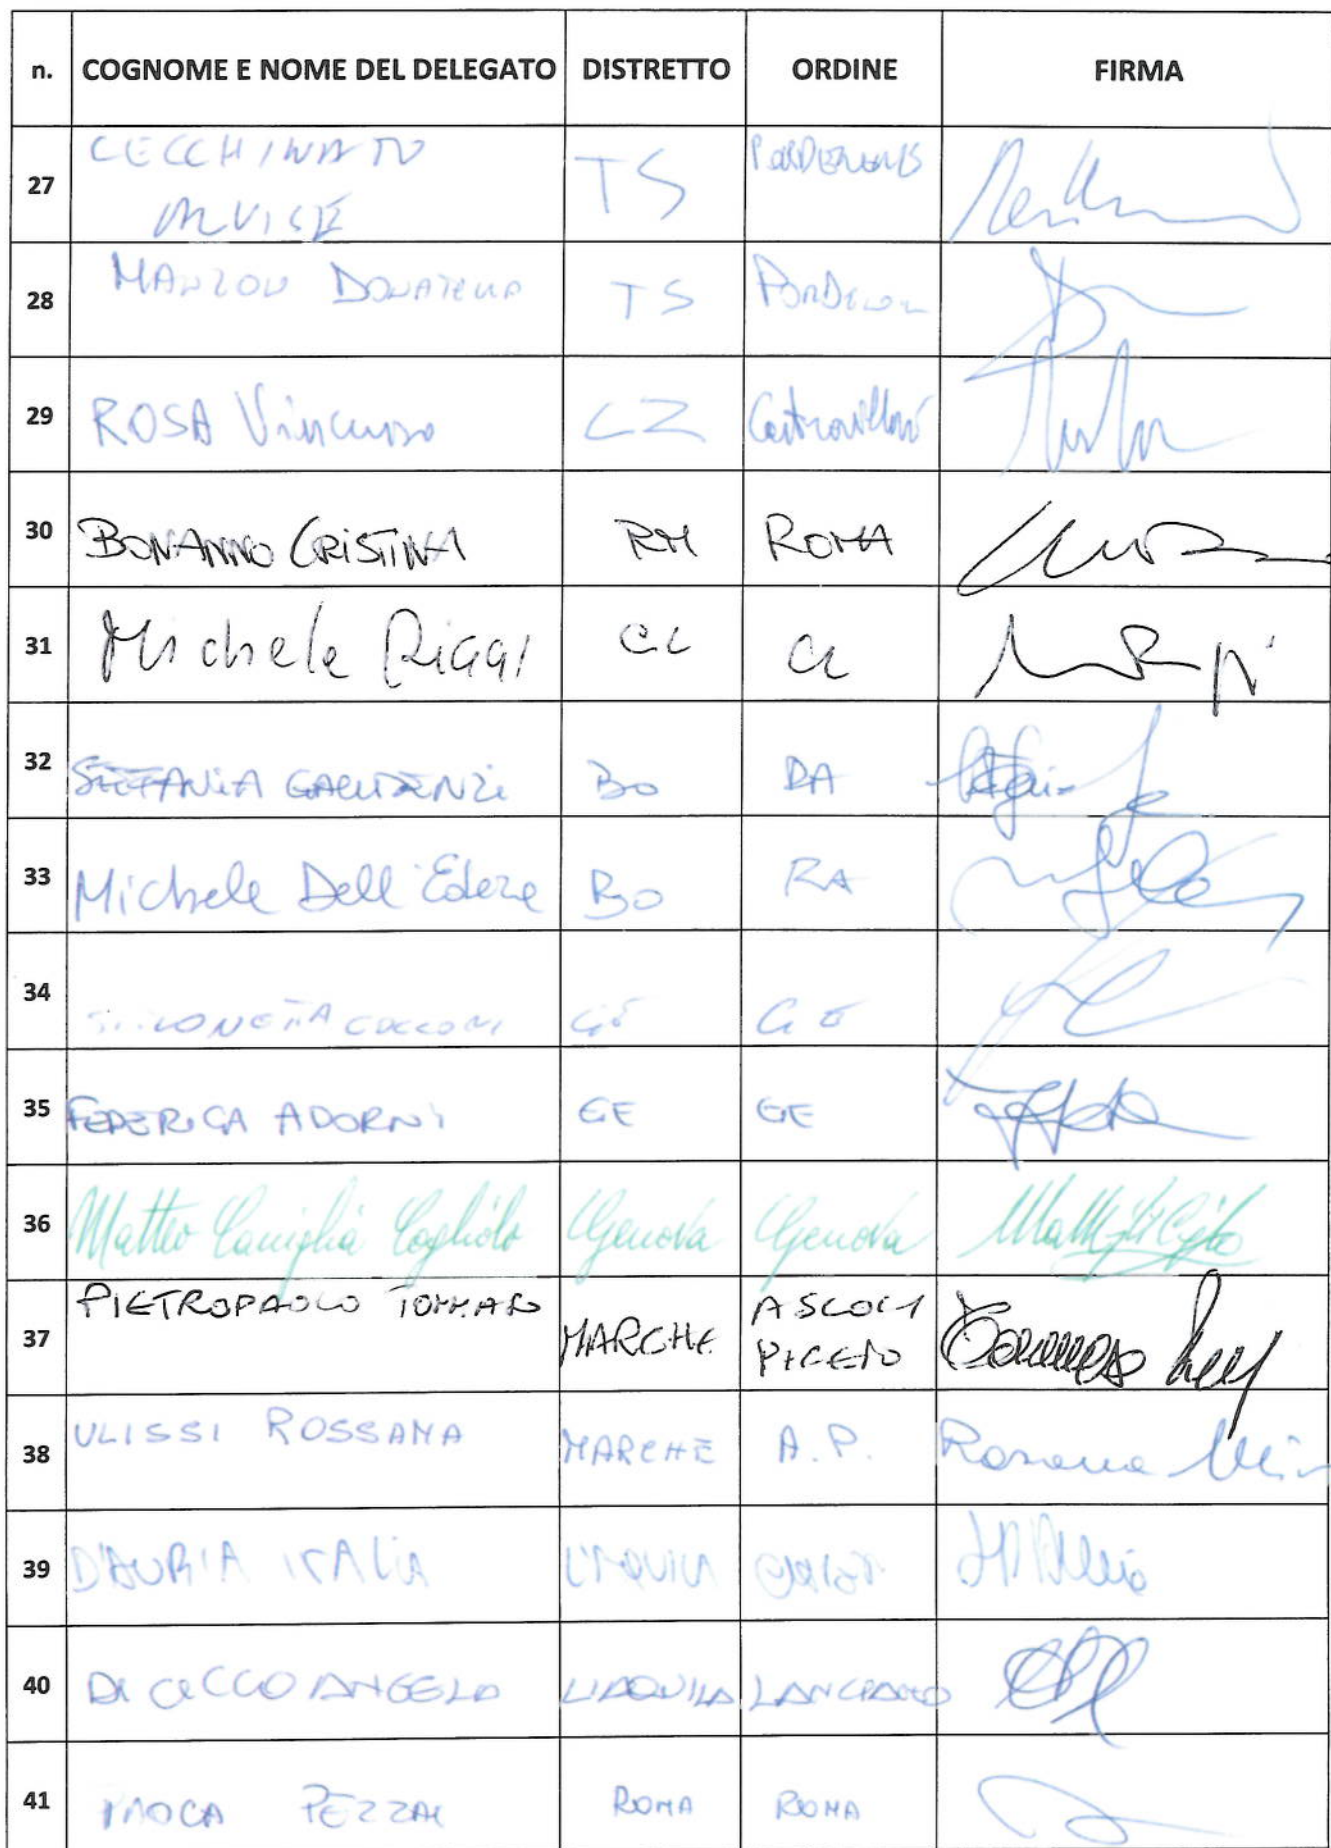 n. COGNOME E NOME DEL DELEGATO DISTRETTO ORDINE FIRMA
27 CECCHINATO ALVISE TS PORDENONE
28 MANZON DONATELLA TS PORDENON
29 ROSA Vincenzo CZ Castrovillari
30 BONANNO CRISTINA RM ROMA
31 Michele Riggi CL CL
32 STEFANIA GAUDENZI BO RA
33 Michele Dell'Edera BO RA
34 GE GE
35 FEDERICA ADORNI GE GE
36 Matteo Caniglia Cogliolo Genova Genova
37 PIETROPAOLO TOMMASO MARCHE ASCOLI PICENO Tommaso
38 ULISSI ROSSANA MARCHE A.P. Rossana Ulissi
39 D'AURIA ITALIA L'AQUILA
40 DI CECCO ANGELO L'AQUILA LANCIANO
41 ROMA ROMA